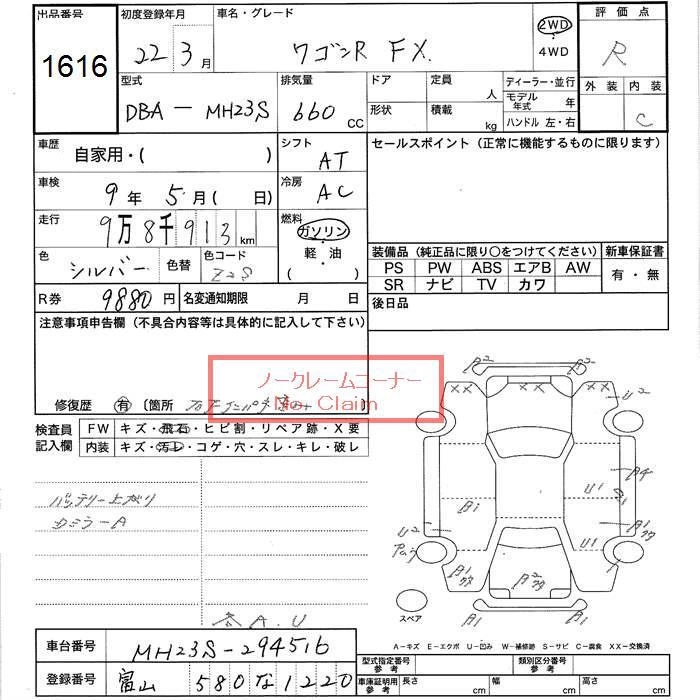 出品番号 初度登録年月 車名・グレード 評価点
1616 22 3月 ワゴンR FX. 2WD・4WD R
外装 内装
C
型式 排気量 ドア 定員 ディーラー・並行
DBA－MH23S 660 CC 形状 積載 人 kg モデル年式 年
ハンドル 左・右
車歴 自家用・( ) シフト AT セールスポイント（正常に機能するものに限ります）
車検 9年 5月( 日) 冷房 AC
走行 9万8千913km 燃料 ガソリン・軽油 ( )
色 シルバー 色替 色コード Z2S
装備品（純正品に限り○をつけてください） 新車保証書
PS PW ABS エアB AW 有・無
SR ナビ TV カワ
R券 9880円 名変通知期限 月 日 後日品
注意事項申告欄（不具合内容等は具体的に記入して下さい）
ノークレームコーナー
No Claim
修復歴 有 〔箇所
検査員記入欄 FW キズ・飛石・ヒビ割・リペア跡・X要
内装 キズ・汚レ・コゲ・穴・スレ・キレ・破レ
バッテリー上がり
カミラーA
各A.U
A2 A2
XX XX XX
U2
A4
U1
A1
U2
U1
A1
A2
A1 A1
スペア
A－キズ E－エクボ U－凹み W－補修跡 S－サビ C－腐食 XX－交換済
車台番号 MH23S-294516
型式指定番号 参考 類別区分番号 参考
登録番号 富山 580 な1220
車庫証明用参考 長さ cm 幅 cm 高さ cm